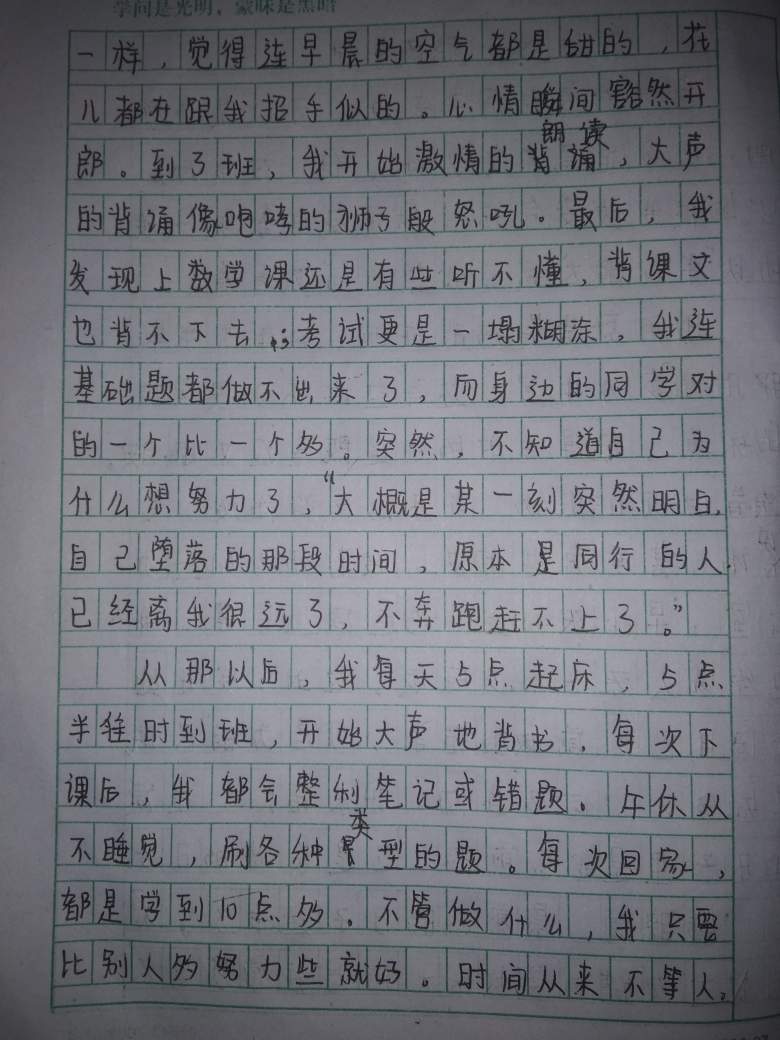 学问是光明，蒙昧是黑暗
一样，觉得连早晨的空气都是甜的，花
儿都在跟我招手似的。心情瞬间豁然开
朗读
郎。到了班，我开始激情的背诵，大声
的背诵像咆哮的狮子般怒吼。最后，我
发现上数学课还是有些听不懂，背课文
也背不下去，考试更是一塌糊涂，我连
基础题都做不出来了，而身边的同学对
的一个比一个多。突然，不知道自己为
什么想努力了，“大概是某一刻突然明白，
自己堕落的那段时间，原本是同行的人，
已经离我很远了，不奔跑赶不上了。”
从那以后，我每天5点起床，5点
半准时到班，开始大声地背书，每次下
课后，我都会整利笔记或错题。午休从
类
不睡觉，刷各种型的题。每次回家，
都是学到10点多。不管做什么，我只要
比别人多努力些就好。时间从来不等人。